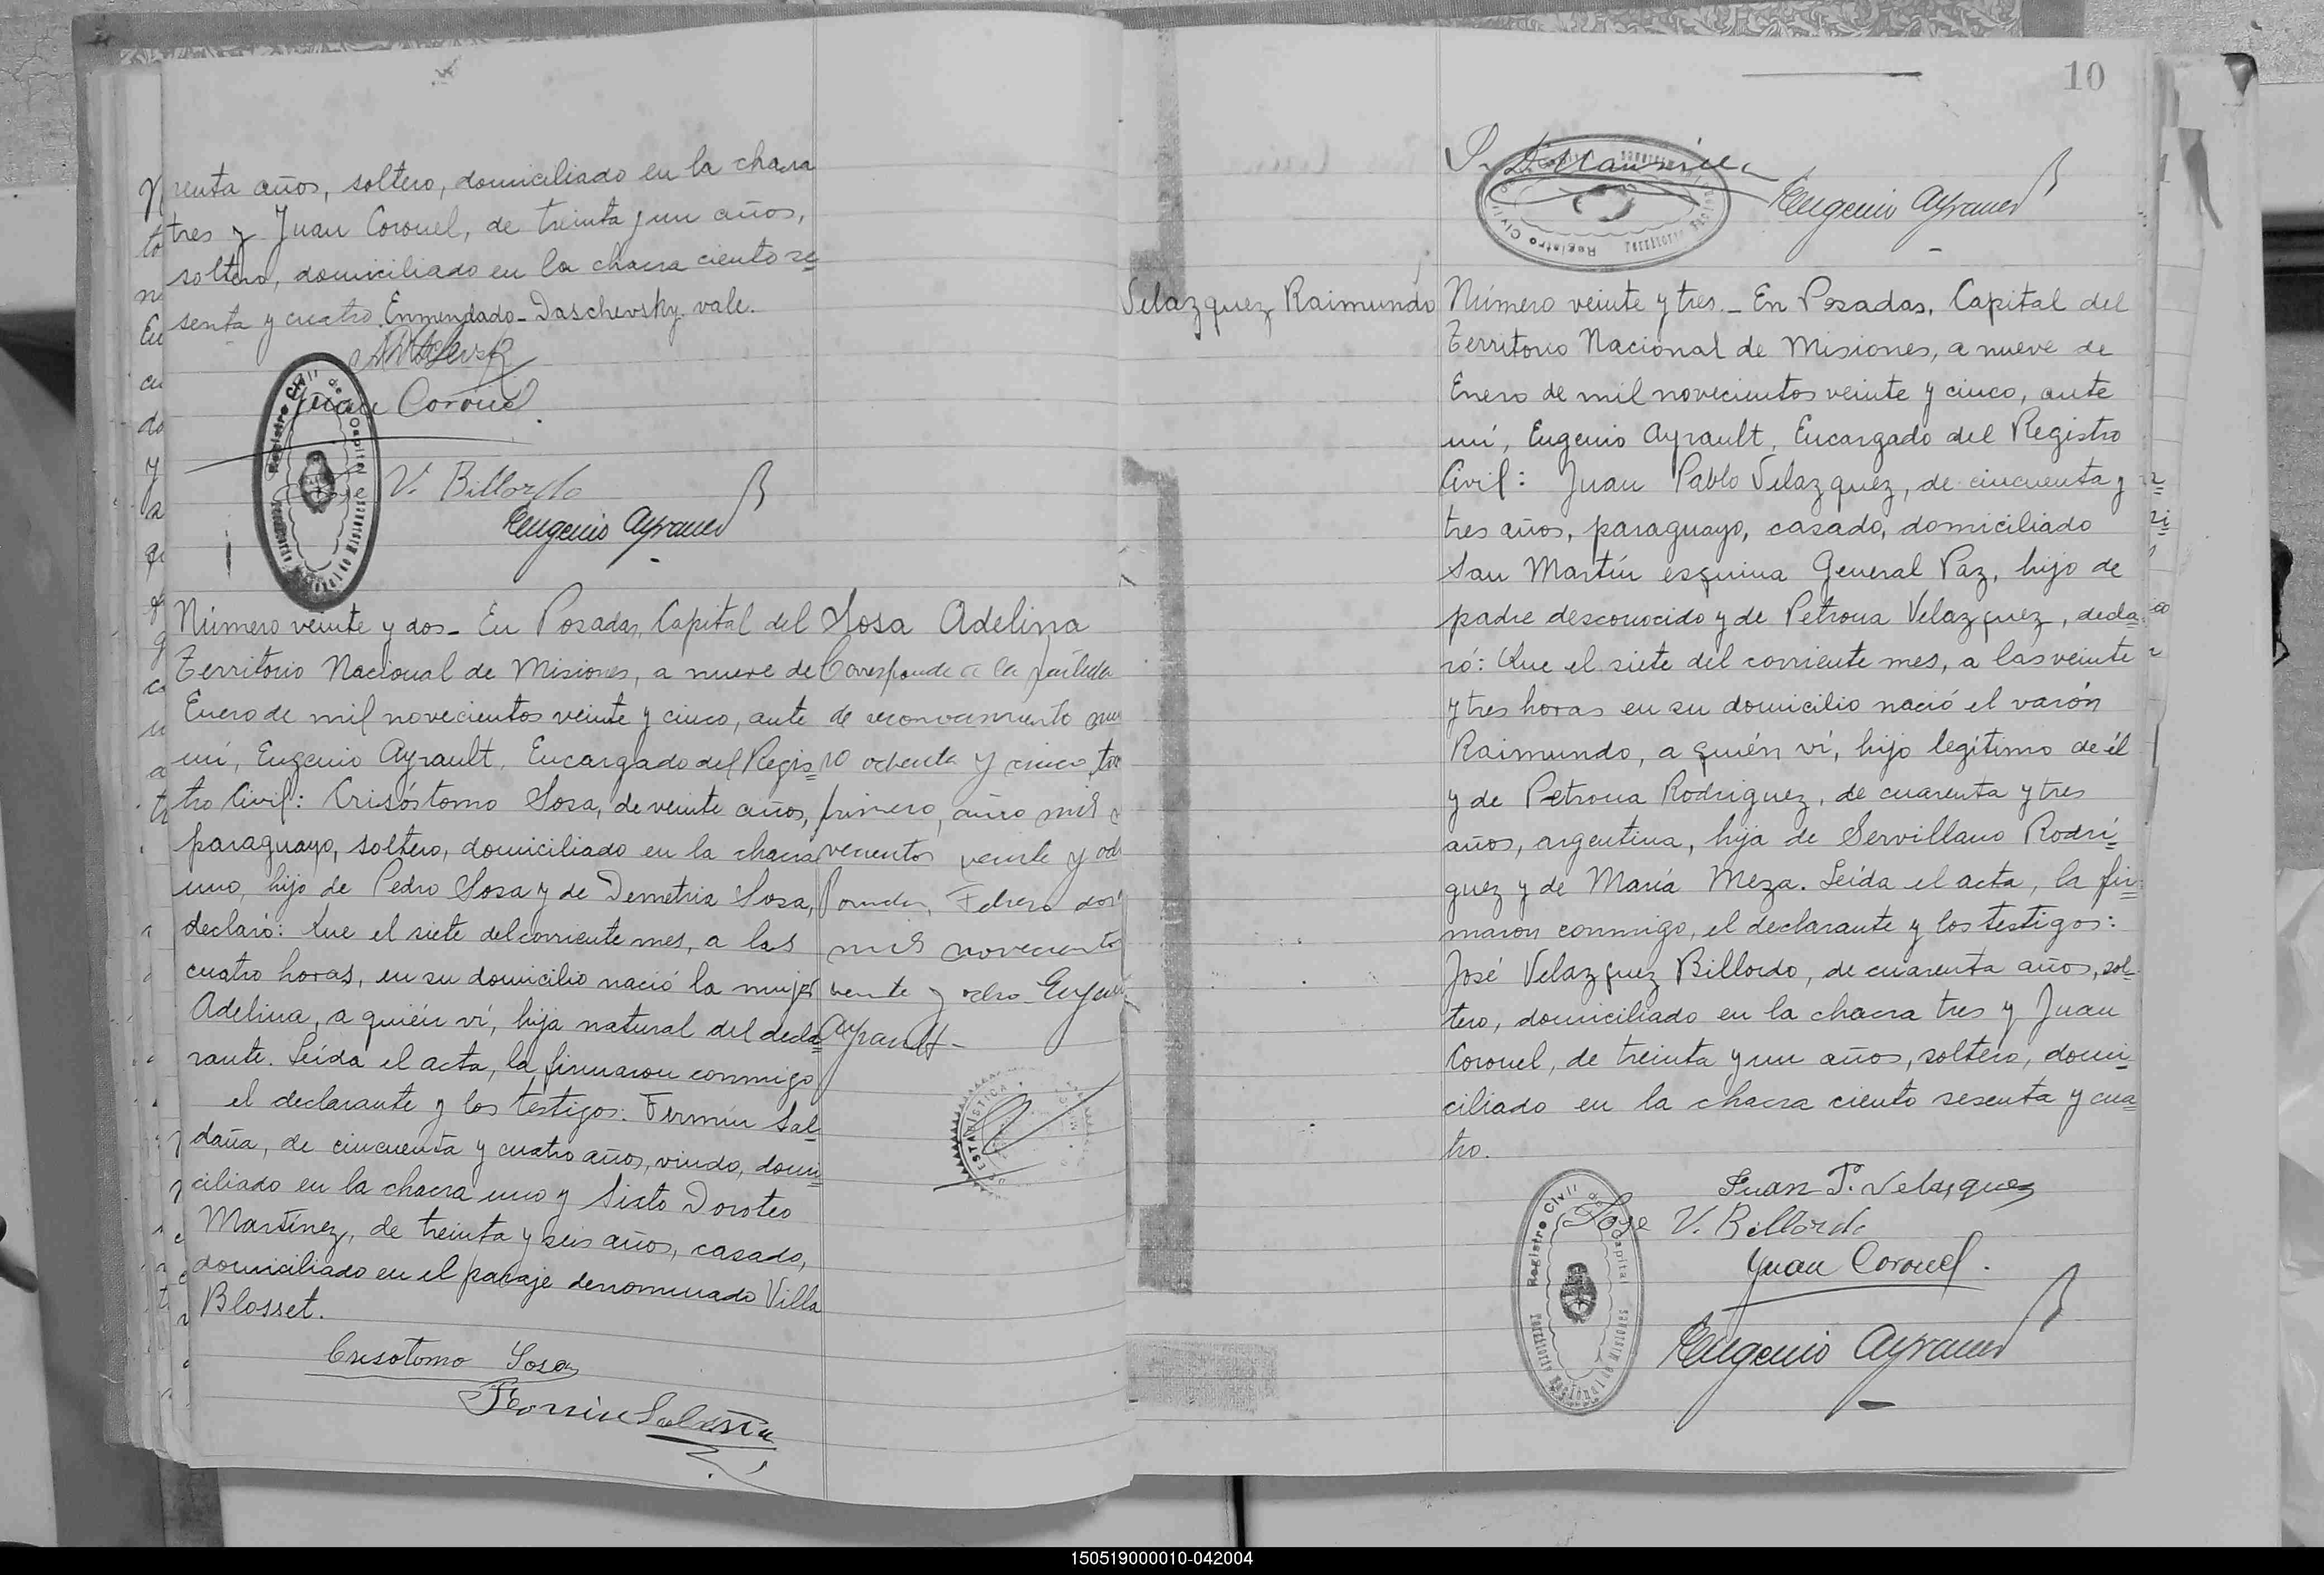 renta años, soltero, domiciliado en la chacra
tres y Juan Coronel, de treinta y un años,
soltero, domiciliado en la chacra ciento se
senta y cuatro. Enmendado - Daschevsky. vale.
Juan Coronel
Jose V. Billordo
Eugenio Ayrault
Registro Civil de la Capital
Territorio Nacional de Misiones
Número veinte y dos - En Posadas, Capital del
Territorio Nacional de Misiones, a nueve de
Enero de mil novecientos veinte y cinco, ante
mí, Eugenio Ayrault, Encargado del Regis=
tro Civil: Crisóstomo Sosa, de veinte años,
paraguayo, soltero, domiciliado en la chacra
uno, hijo de Pedro Sosa y de Demetria Sosa,
declaró: Que el siete del corriente mes, a las
cuatro horas, en su domicilio nació la mujer
Adelina, a quién ví, hija natural del decla=
rante. Leída el acta, la firmaron conmigo
el declarante y los testigos: Fermin Sal=
daña, de cincuenta y cuatro años, viudo, domi=
ciliado en la chacra uno y Sixto Doroteo
Martínez, de treinta y seis años, casado,
domiciliado en el paraje denominado Villa
Blosset.
Crisotomo Sosa
Fermin Saldaña
Sosa Adelina
Corresponde a la partida
de reconocimiento nume
ro ochenta y cinco, tomo
primero, año mil no
vecientos veinte y ocho
Posadas, Febrero dos
mil novecientos
veinte y ocho Eugenio
Ayrault -
ESTADISTICA
10
Eugenio Ayrault
Registro Civil
Velazquez, Raimundo
Número veinte y tres. - En Posadas, Capital del
Territorio Nacional de Misiones, a nueve de
Enero de mil novecientos veinte y cinco, ante
mí, Eugenio Ayrault, Encargado del Registro
Civil: Juan Pablo Velazquez, de cincuenta y
tres años, paraguayo, casado, domiciliado
San Martín esquina General Paz, hijo de
padre desconocido y de Petrona Velazquez, decla=
ró: Que el siete del corriente mes, a las veinte
y tres horas en su domicilio nació el varón
Raimundo, a quién ví, hijo legítimo de él
y de Petrona Rodriguez, de cuarenta y tres
años, argentina, hija de Servillano Rodrí=
guez y de María Meza. Leída el acta, la fir=
maron conmigo, el declarante y los testigos:
José Velazquez Billordo, de cuarenta años, sol=
tero, domiciliado en la chacra tres y Juan
Coronel, de treinta y un años, soltero, domi=
ciliado en la chacra ciento sesenta y cua=
tro.
Juan P. Velazquez
Jose V. Billordo
Juan Coronel.
Eugenio Ayrault
Registro Civil de la Capital
Territorio Nacional de Misiones
150519000010-042004